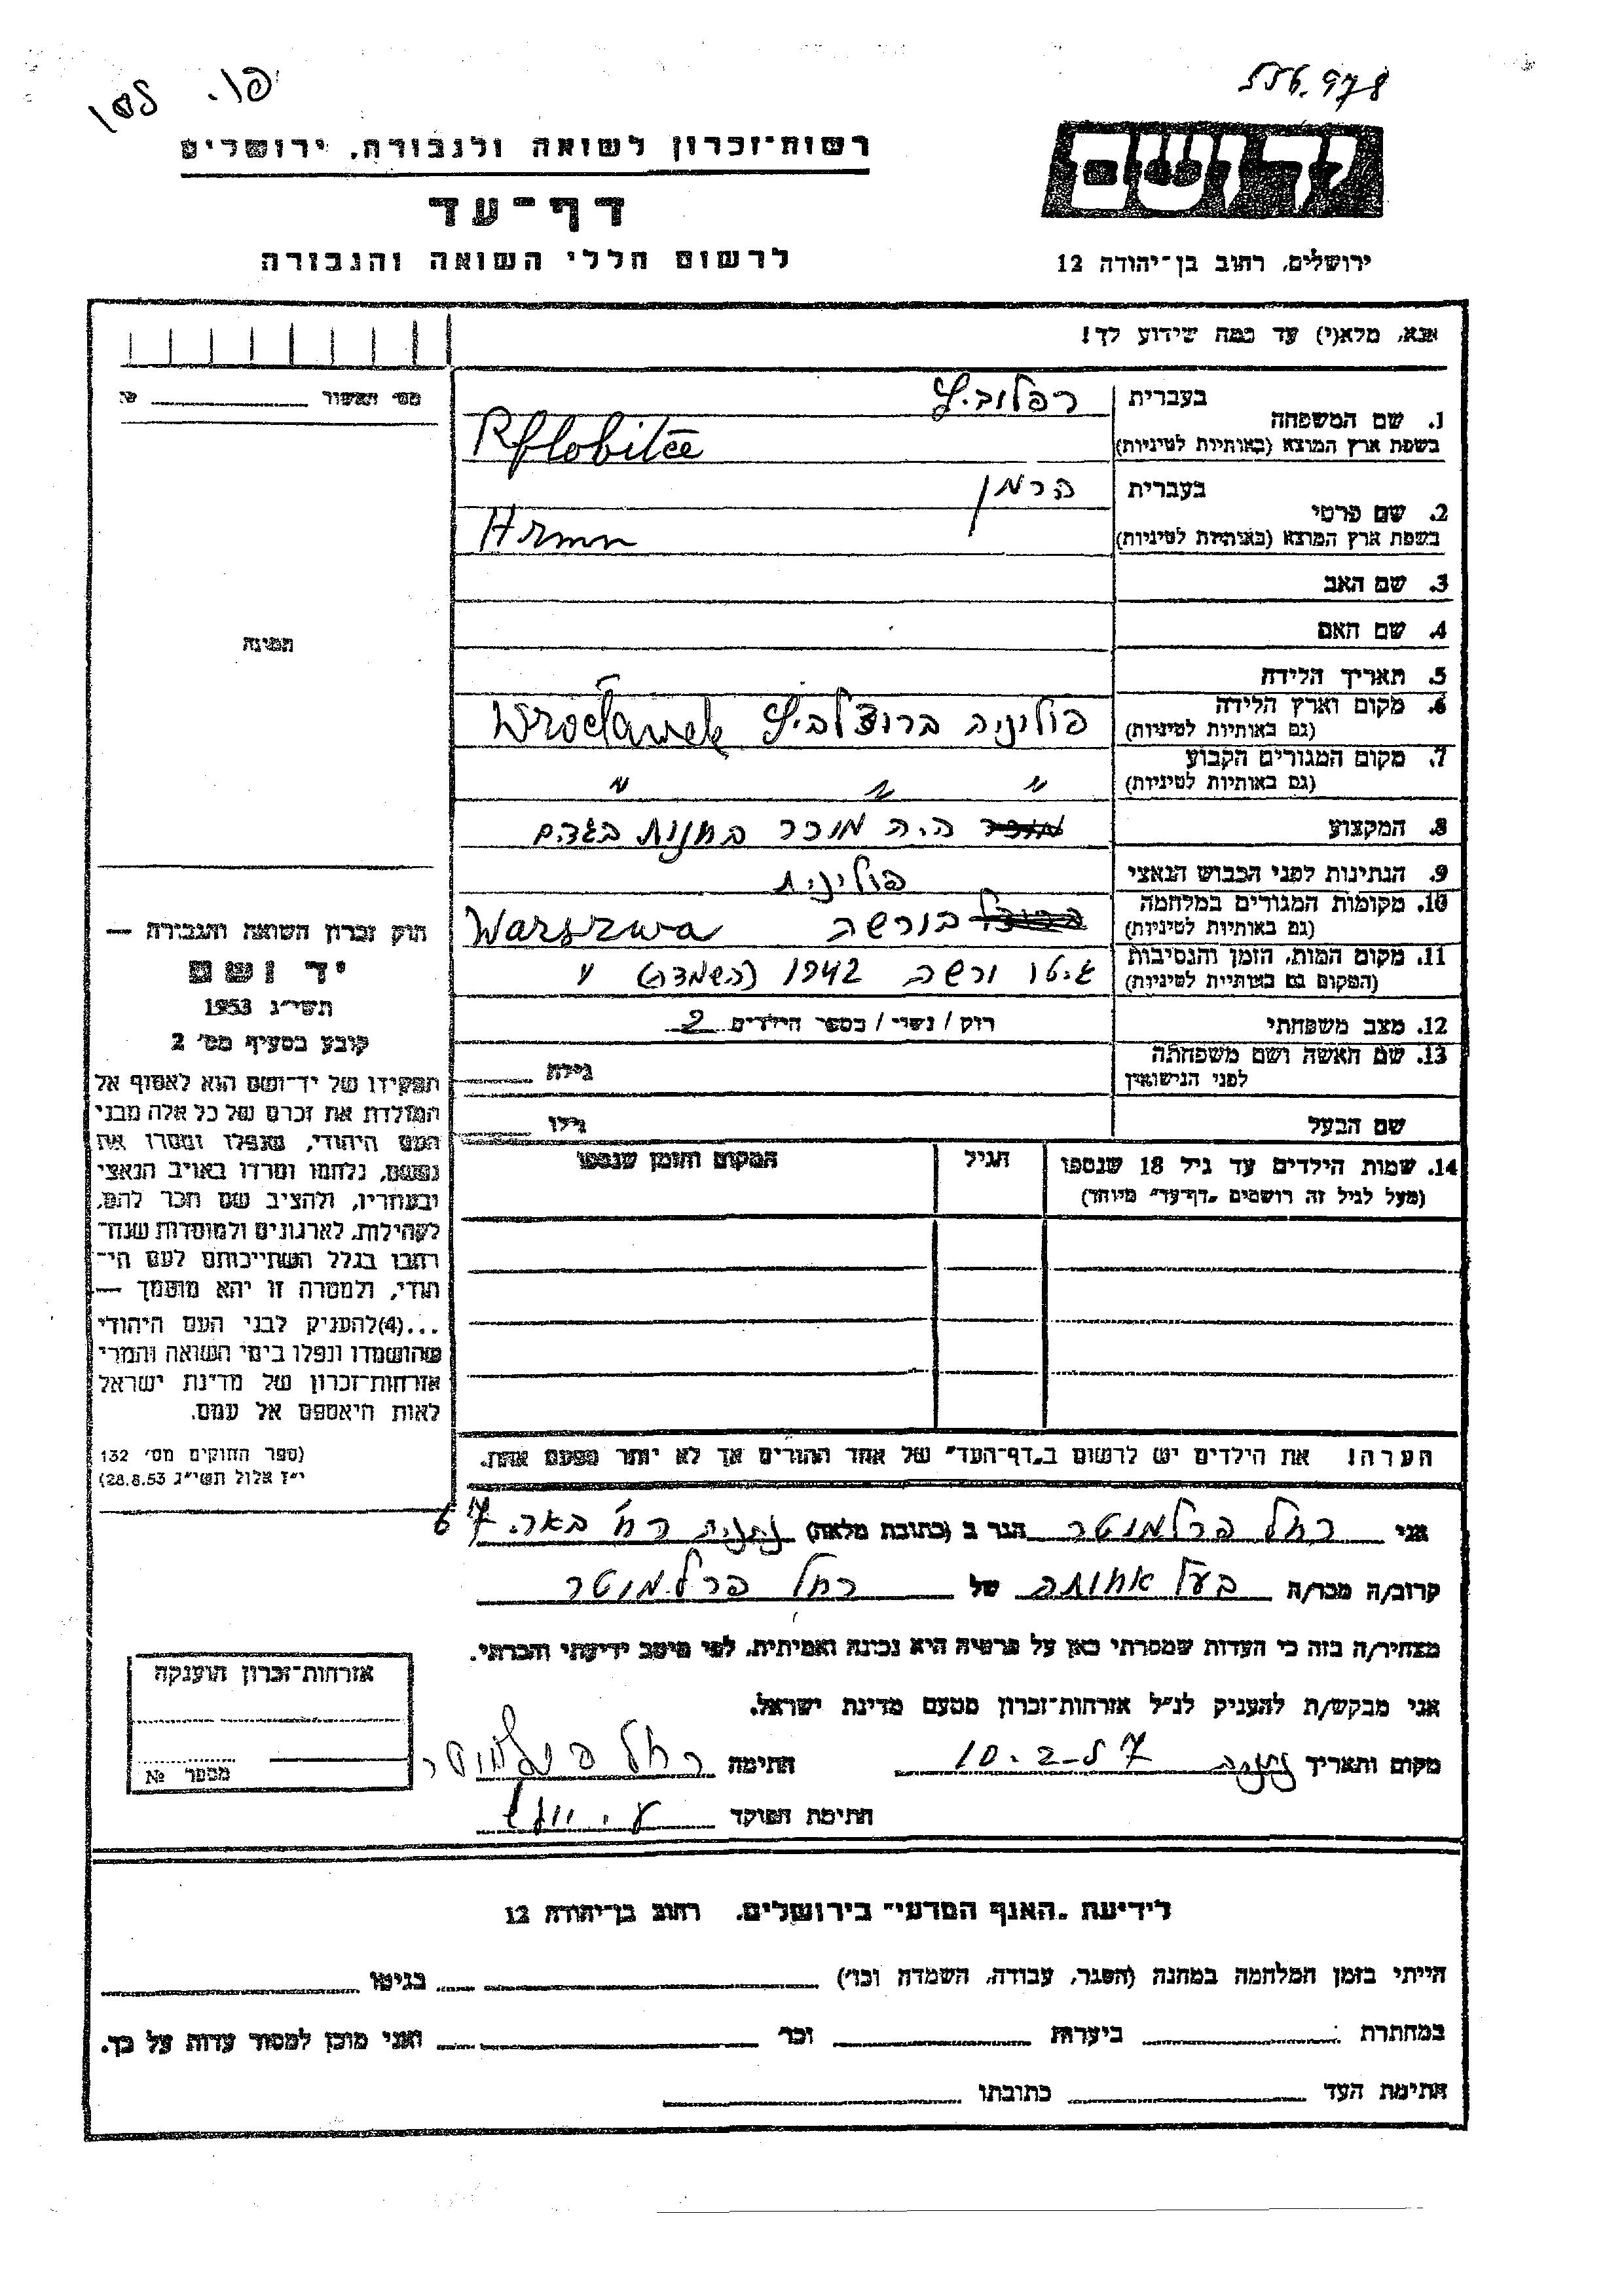 556.978
רשות-זכרון לשואה ולגבורה, ירושלים
דף-עד
לרשום חללי השואה והגבורה
ירושלים, רחוב בן-יהודה 12
אנא, מלא(י) עד כמה שידוע לך!
מס' האשור
1. שם המשפחה
בעברית רפלוביץ
בשפת ארץ המוצא (באותיות לטיניות) Rflobitce
2. שם פרטי
בעברית הרמן
בשפת ארץ המוצא (באותיות לטיניות) Hrmn
3. שם האב
4. שם האם
תמונה
5. תאריך הלידה
6. מקום וארץ הלידה
(גם באותיות לטיניות) פוליניה ברוצלביץ Wrocławek
7. מקום המגורים הקבוע
(גם באותיות לטיניות) " " "
8. המקצוע היה מוכר בחנות בגדים
9. הנתינות לפני הכבוש הנאצי פולינית
10. מקומות המגורים במלחמה
(גם באותיות לטיניות) בורשה Warszwa
11. מקום המות, הזמן והנסיבות
(המקום גם באותיות לטיניות) גיטו ורשה 1942 (השמדה)
12. מצב משפחתי רוק / נשוי / מספר הילדים 2
13. שם האשה ושם משפחתה
לפני הנישואין גילה
שם הבעל גילו
14. שמות הילדים עד גיל 18 שנספו
(מעל לגיל זה רושמים "דף-עד" מיוחד)
הגיל
המקום והזמן שנספו
הערה! את הילדים יש לרשום ב"דף-העד" של אחד ההורים אך לא יותר מפעם אחת.
חוק זכרון השואה והגבורה —
יד ושם
תשי"ג 1953
קובע בסעיף מס' 2
תפקידו של יד-ושם הוא לאסוף אל
המולדת את זכרם של כל אלה מבני
העם היהודי, שנפלו ומסרו את
נפשם, נלחמו ומרדו באויב הנאצי
ובעוזריו, ולהציב שם וזכר להם,
לקהילות, לארגונים ולמוסדות שנח־
רבו בגלל השתייכותם לעם הי־
הודי, ולמטרה זו יהא מוסמך —
...(4) להעניק לבני העם היהודי
שהושמדו ונפלו בימי השואה והמרי
אזרחות-זכרון של מדינת ישראל
לאות היאספם אל עמם.
(ספר החוקים מס' 132
י"ז אלול תשי"ג 28.8.53)
אני רחל פרלמוטר הגר ב (כתובת מלאה) נתניה רח' בארי 67
קרוב/ה מכר/ה בעל אחותה של רחל פרלמוטר
מצהיר/ה בזה כי העדות שמסרתי כאן על פרטיה היא נכונה ואמיתית, לפי מיטב ידיעתי והכרתי.
אני מבקש/ת להעניק לנ"ל אזרחות-זכרון מטעם מדינת ישראל.
מקום ותאריך נתניה 10-2-57 חתימה רחל פרלמוטר
חתימת הפוקד
אזרחות-זכרון הוענקה
מספר №
לידיעת "האגף המדעי" בירושלים, רחוב בן-יהודה 12
הייתי בזמן המלחמה במחנה (הסגר, עבודה, השמדה וכו') בגיטו
במחתרת ביערות וכו' ואני מוכן למסור עדות על כך.
חתימת העד כתובתו